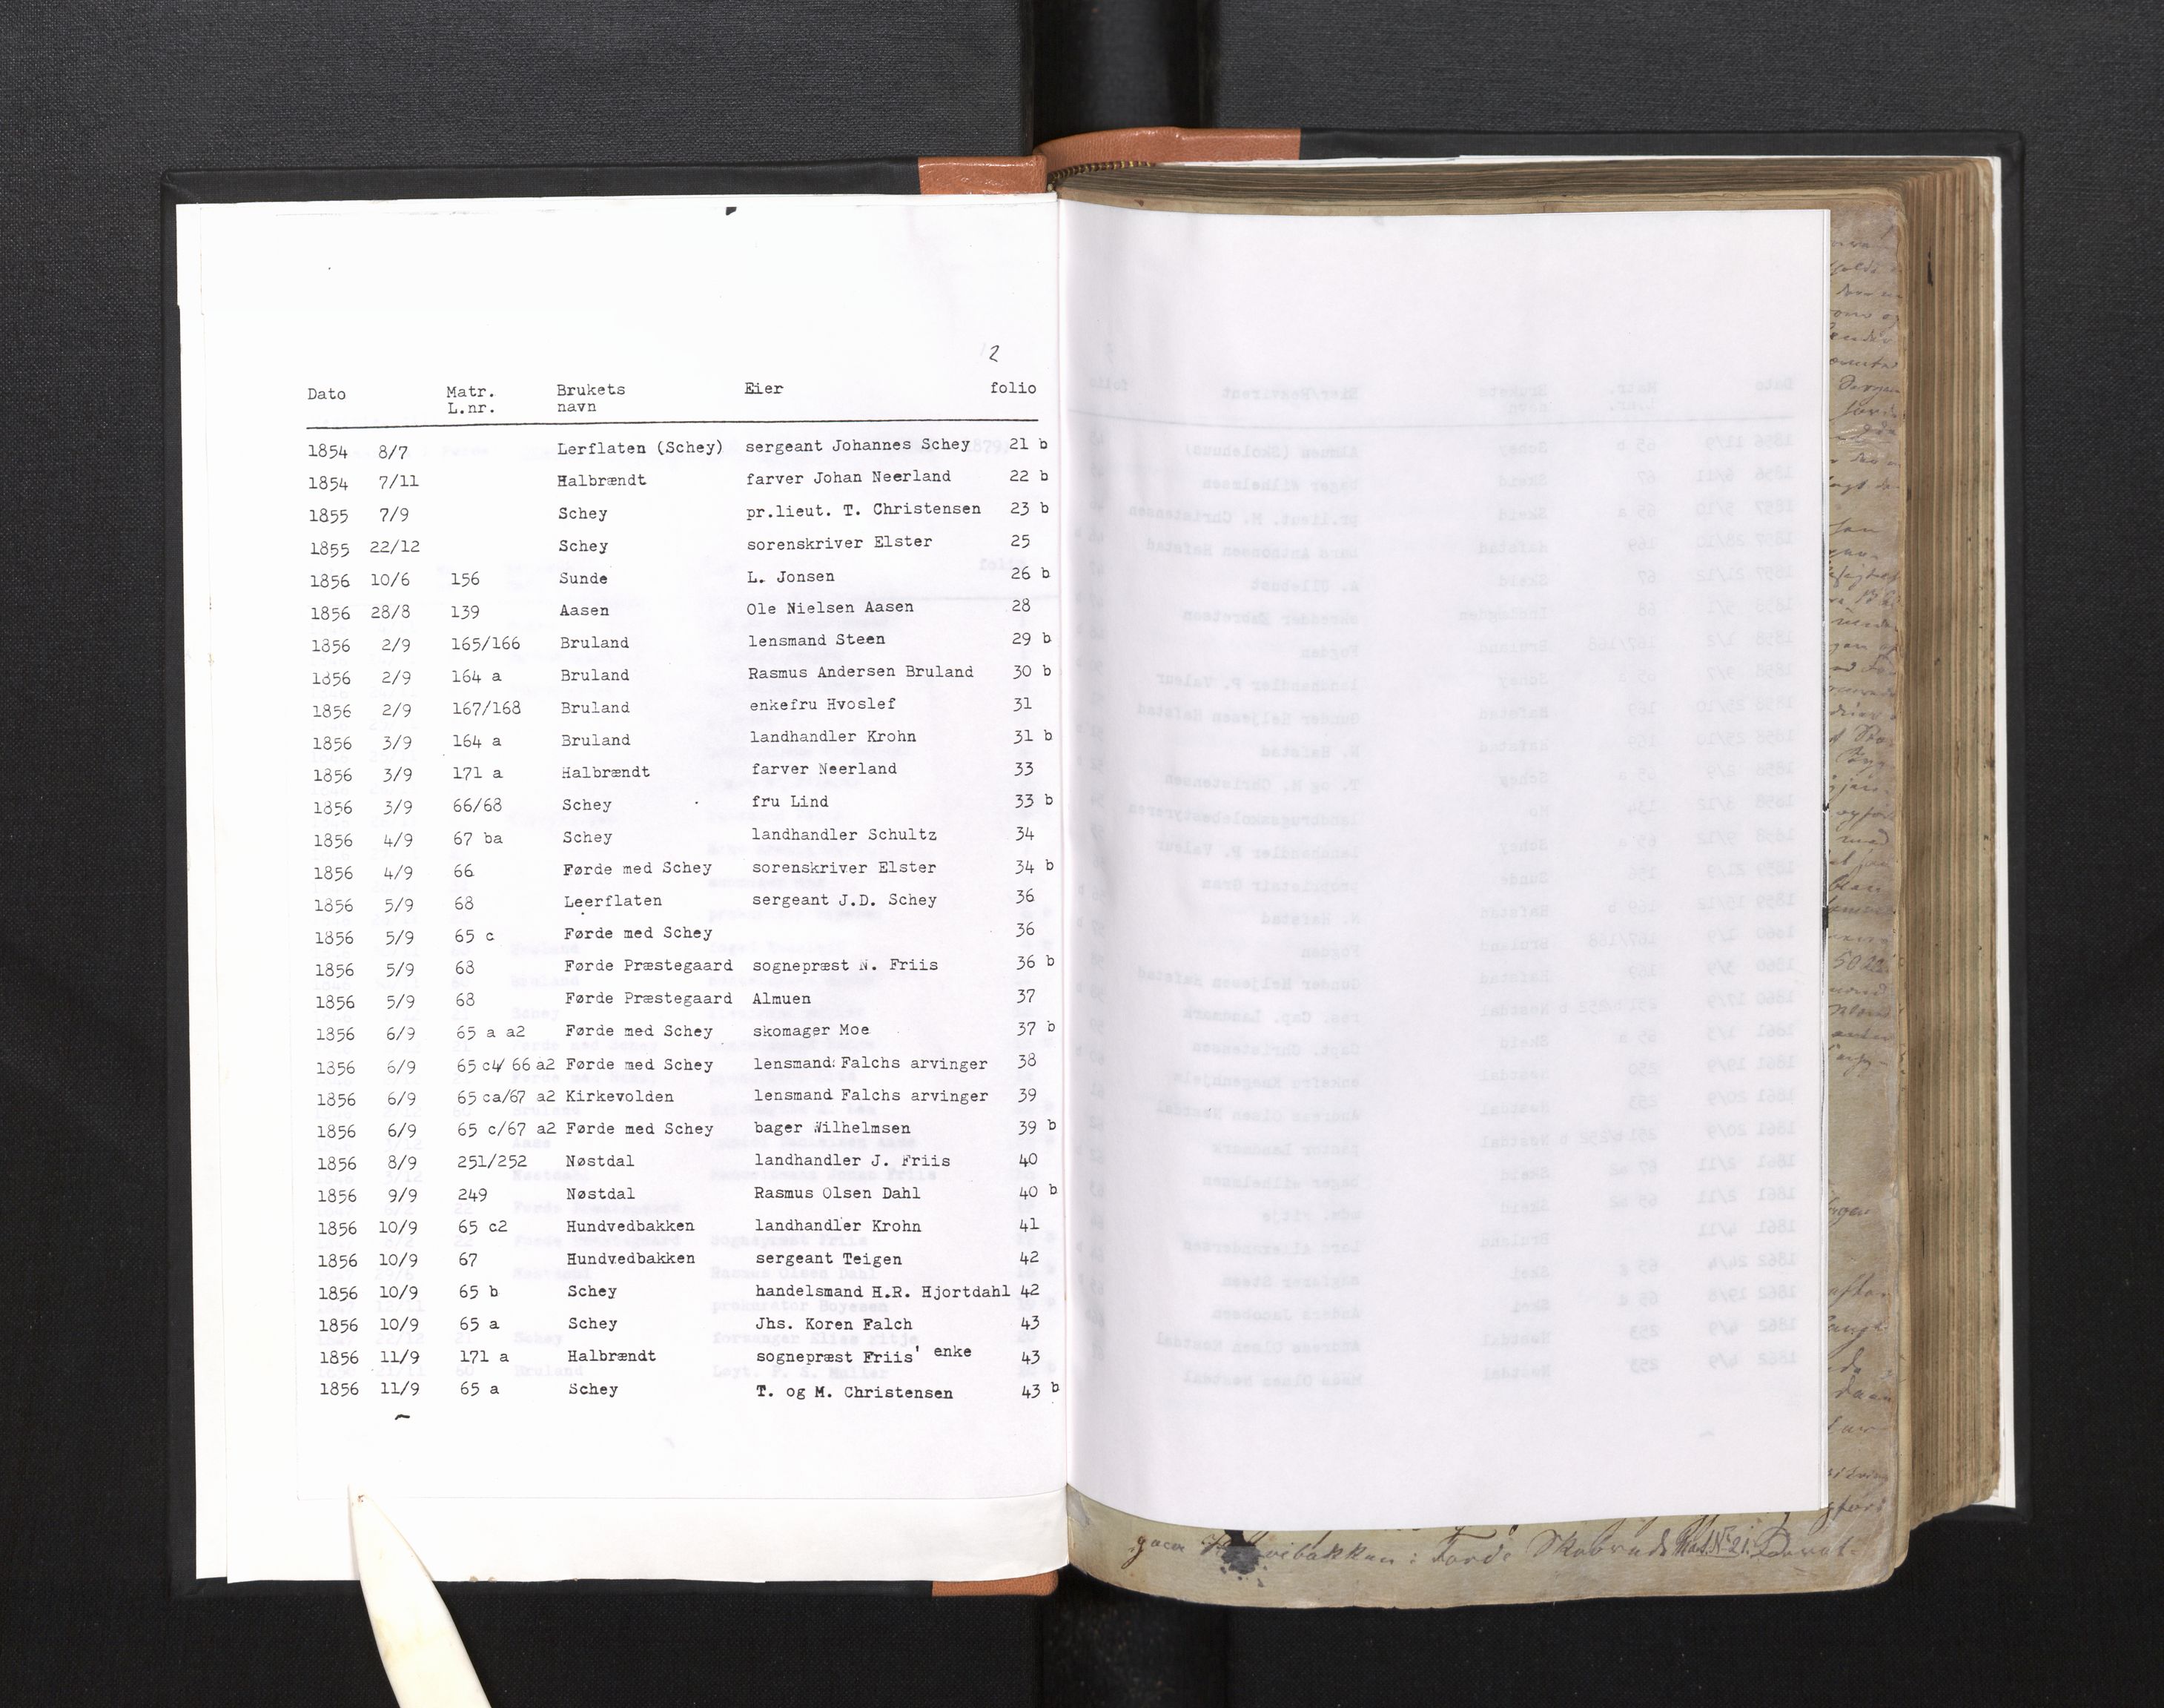 2
Dato Matr. L.nr. Brukets navn Eier folio
1854 8/7 Lerflaten (Schey) sergeant Johannes Schey 21 b
1854 7/11 Halbrændt farver Johan Neerland 22 b
1855 7/9 Schey pr.lieut. T. Christensen 23 b
1855 22/12 Schey sorenskriver Elster 25
1856 10/6 156 Sunde L. Jonsen 26 b
1856 28/8 139 Aasen Ole Nielsen Aasen 28
1856 2/9 165/166 Bruland lensmand Steen 29 b
1856 2/9 164 a Bruland Rasmus Andersen Bruland 30 b
1856 2/9 167/168 Bruland enkefru Hvoslef 31
1856 3/9 164 a Bruland landhandler Krohn 31 b
1856 3/9 171 a Halbrændt farver Neerland 33
1856 3/9 66/68 Schey fru Lind 33 b
1856 4/9 67 ba Schey landhandler Schultz 34
1856 4/9 66 Førde med Schey sorenskriver Elster 34 b
1856 5/9 68 Leerflaten sergeant J.D. Schey 36
1856 5/9 65 c Førde med Schey 36
1856 5/9 68 Førde Præstegaard sognepræst N. Friis 36 b
1856 5/9 68 Førde Præstegaard Almuen 37
1856 6/9 65 a a2 Førde med Schey skomager Moe 37 b
1856 6/9 65 c4/ 66 a2 Førde med Schey lensmand Falchs arvinger 38
1856 6/9 65 ca/67 a2 Kirkevolden lensmand Falchs arvinger 39
1856 6/9 65 c/67 a2 Førde med Schey bager Wilhelmsen 39 b
1856 8/9 251/252 Nøstdal landhandler J. Friis 40
1856 9/9 249 Nøstdal Rasmus Olsen Dahl 40 b
1856 10/9 65 c2 Hundvedbakken landhandler Krohn 41
1856 10/9 67 Hundvedbakken sergeant Teigen 42
1856 10/9 65 b Schey handelsmand H.R. Hjortdahl 42
1856 10/9 65 a Schey Jhs. Koren Falch 43
1856 11/9 171 a Halbrændt sognepræst Friis' enke 43
1856 11/9 65 a Schey T. og M. Christensen 43 b